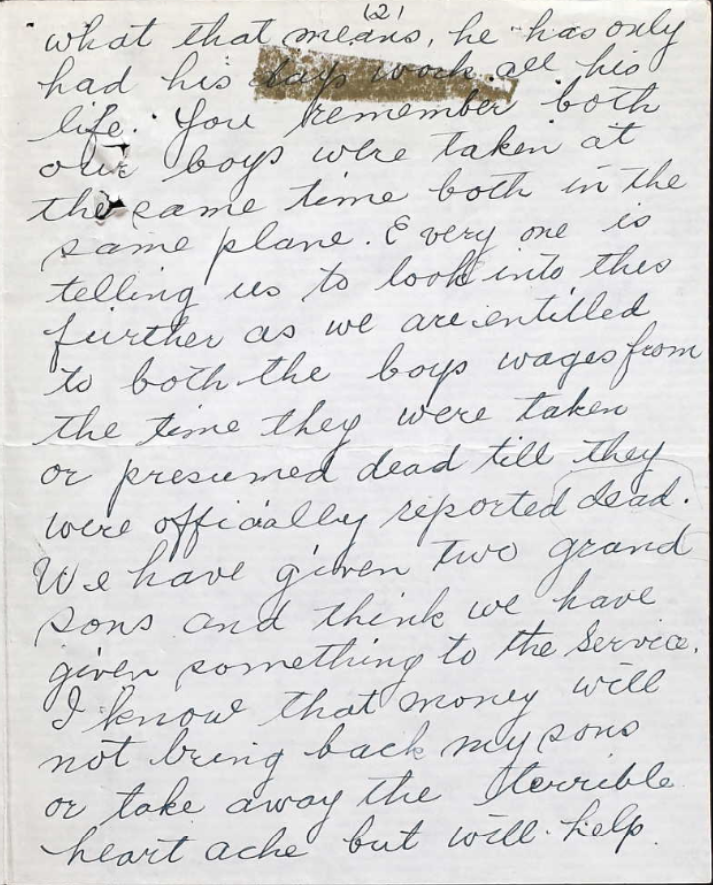 (2)
what that means, he has only
had his days work all his
life. You remember both
our boys were taken at
the same time both in the
same plane. Every one is
telling us to look into this
further as we are entitled
to both the boys wages from
the time they were taken
or presumed dead till they
were officially reported dead.
We have given two grand
sons and think we have
given something to the Service.
I know that money will
not bring back my sons
or take away the terrible
heart ache but will help